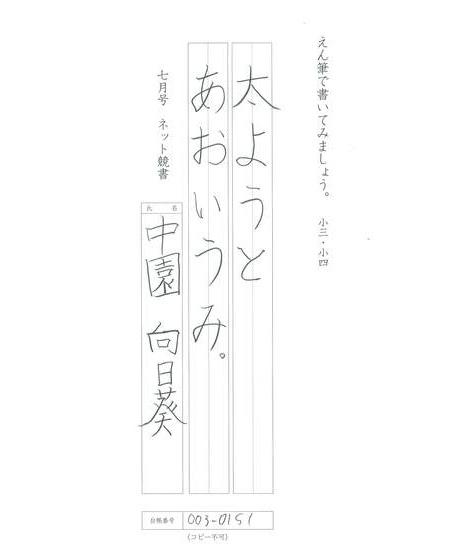 えん筆で書いてみましょう。 小三・小四
太ようと
あおいうみ。
七月号 ネット競書
氏 名
中園 向日葵
台帳番号 003-0151
(コピー不可)